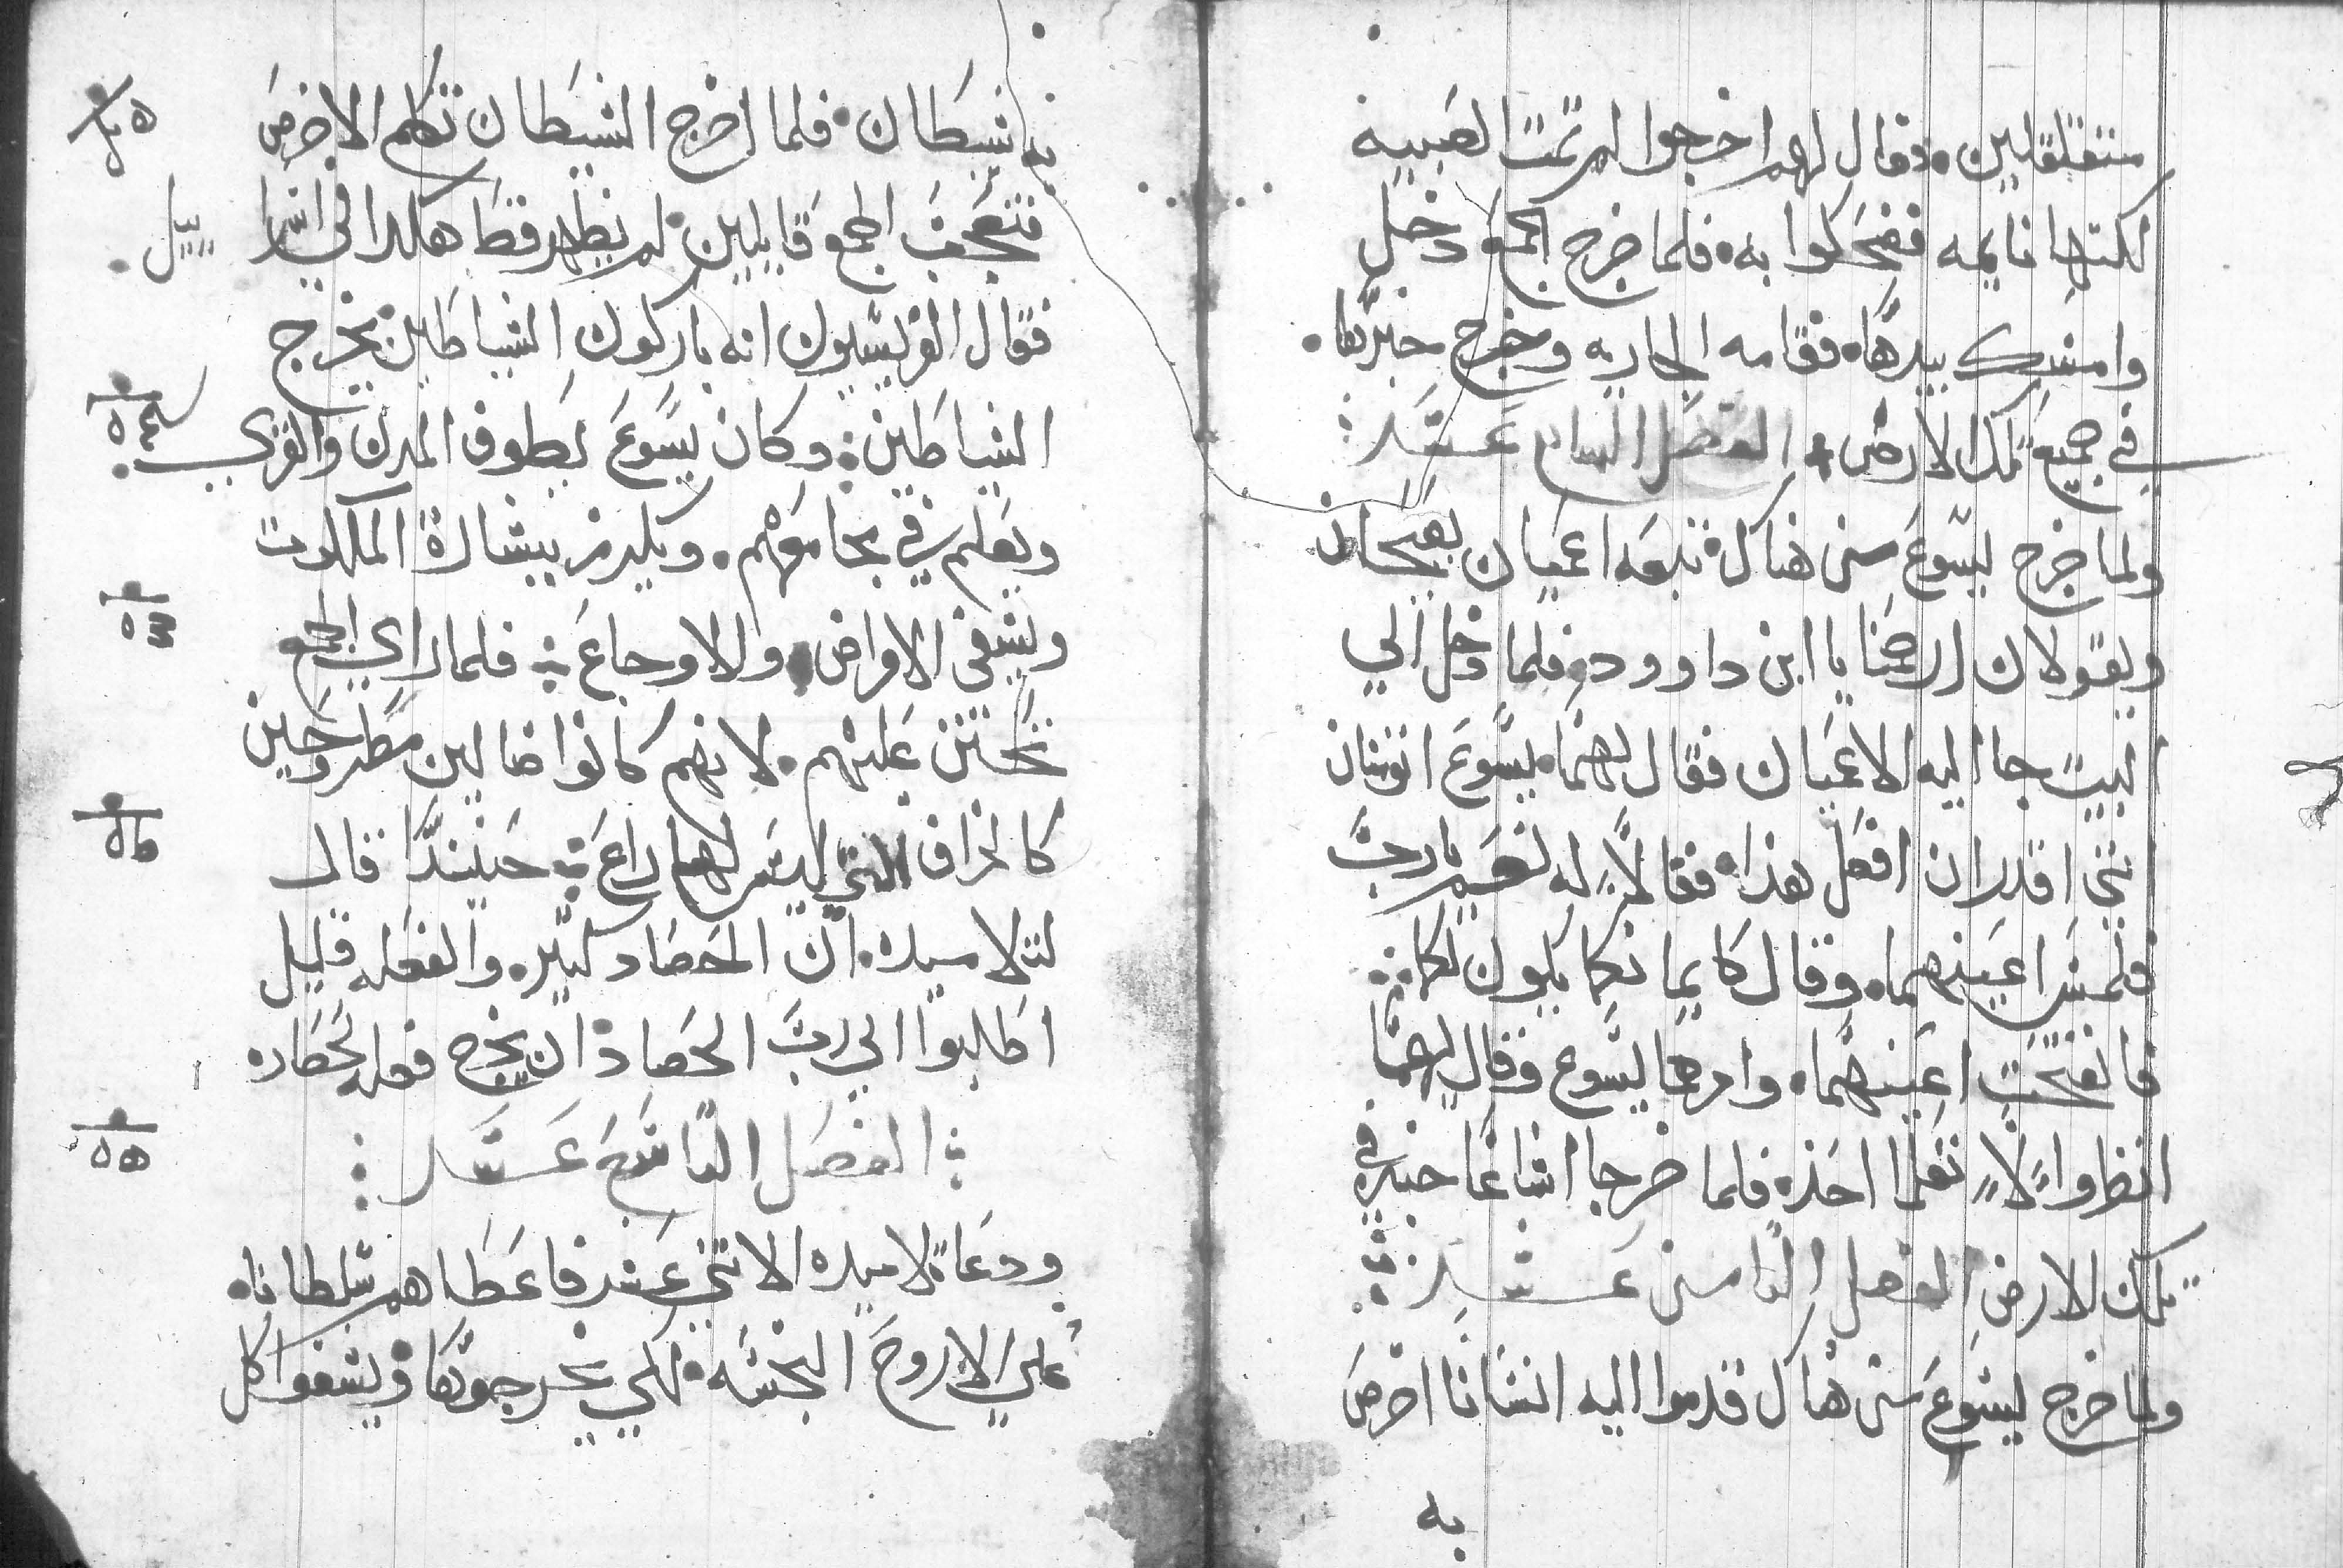 متقلقلين. وقال لهم اخرجوا لم تمت الصبيه
لكنها نايمه فضحكوا به. فلما خرج الجمع دخل
وامسك بيدها. فقامه الجاريه وخرج خبرها.
في جميع تلك الارض. الفصل السابع عشر
ولما خرج يسوع من هناك تبعه اعميان يصيحان
ويقولان ارحمنا يا ابن داوود. فلما دخل الي
البيت جا اليه الاعميان فقال لهما يسوع اتومنان
انني اقدر ان افعل هذا. فقالا له نعم يارب
فلمس اعينهما. وقال كايمانكما يكون لكما
فانفتحت اعينهما. وامرهما يسوع وقال لهما
انظروا لا تعلما احد. فلما خرجا اشاعا خبره في
تلك الارض الفصل التامن عشر
ولما خرج يسوع من هناك قدموا اليه انسانا اخرص
به
به شيطان. فلما اخرج الشيطان تكلم الاخرص
فتعجب الجمع قايلين لم يظهر قط هكدا في اسراييل.
فقال الفريسيون انه باركون الشياطين يخرج
الشياطين. وكان يسوع يطوف المدن والقري
ويعلم في مجامعهم. ويكرز ببشارة الملكوت
ويشفي الامراض والاوجاع. فلما راي الجمع
تحنن عليهم. لانهم كانوا ضالين مطروحين
كالخراف التي ليس لهم راع. حينيدا قال
لتلاميده. ان الحصاد كتير. والفعله قليل
اطلبوا الي رب الحصاد ان يخرج فعله لحصاده
الفصل التاسع عشر
ودعا تلاميده الاتني عشر فاعطاهم سلطانا.
علي الاروح النجسه. لكي يخرجوها ويشفوا كل